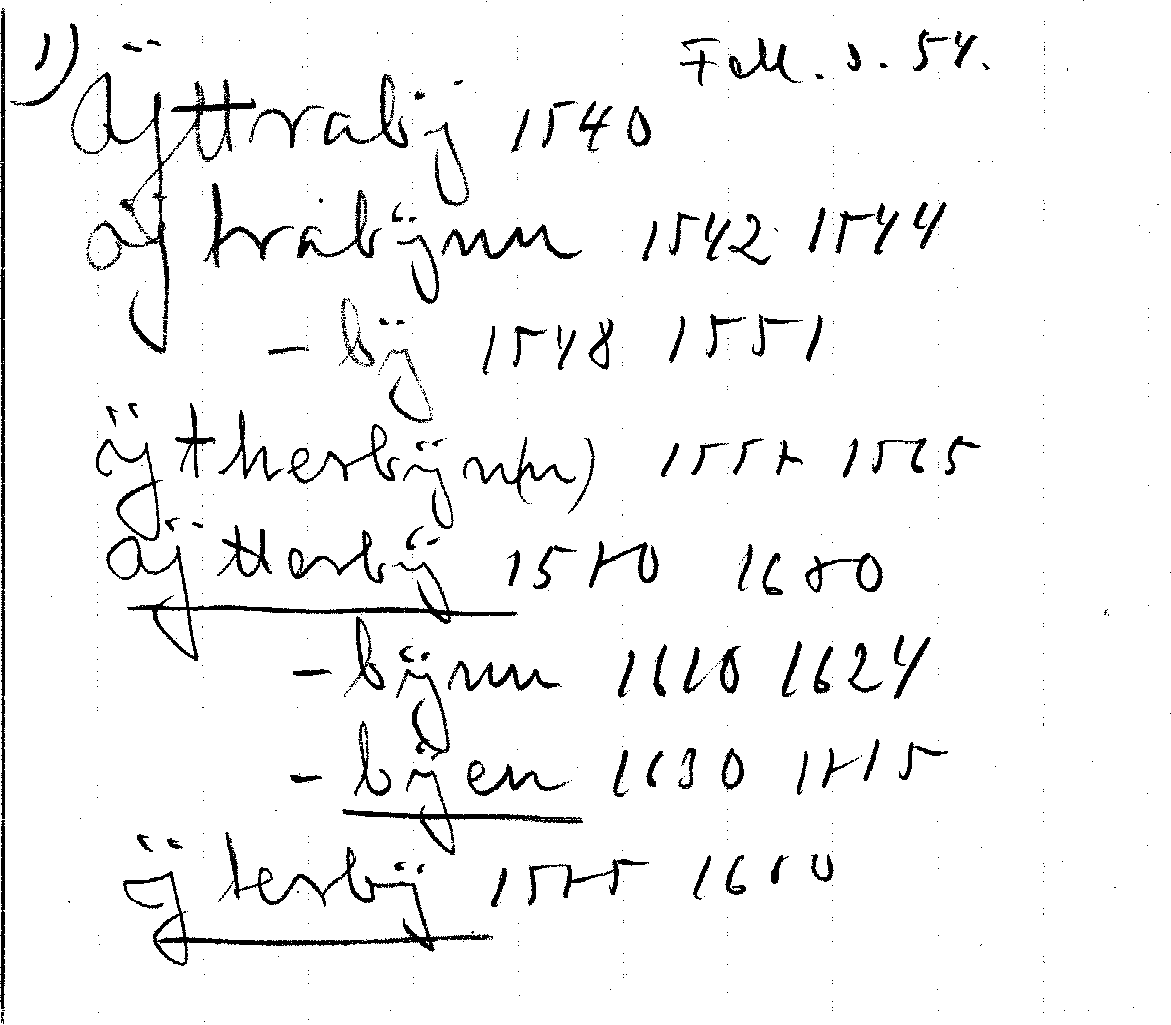 1) FMU. s. 54.
Äÿttrabÿ 1540
äÿtrabÿnn 1542 1544
– bÿ 1548 1551
ÿtherbÿn(n) 1565
äÿtterbÿ 1570 1680
– bÿnn 1610 1624
– bÿen 1630 1715
ÿterbÿ 1575